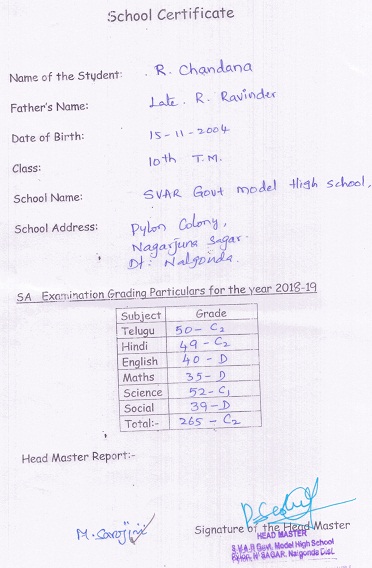 School Certificate
Name of the Student: R. Chandana
Father's Name: Late. R. Ravinder
Date of Birth: 15-11-2004
Class: 10th T.M.
School Name: SVAR Govt model High school,
School Address: Pylon Colony,
Nagarjuna Sagar.
Dt: Nalgonda.
SA Examination Grading Particulars for the year 2018-19
Subject Grade
Telugu 50 - C2
Hindi 49 - C2
English 40 - D
Maths 35 - D
Science 52 - C1
Social 39 - D
Total:- 265 - C2
Head Master Report:-
M. Sarojini
Signature of the Head Master
HEAD MASTER
S.V.A.R Govt. Model High School
Pylon, N' SAGAR, Nalgonda Dist.